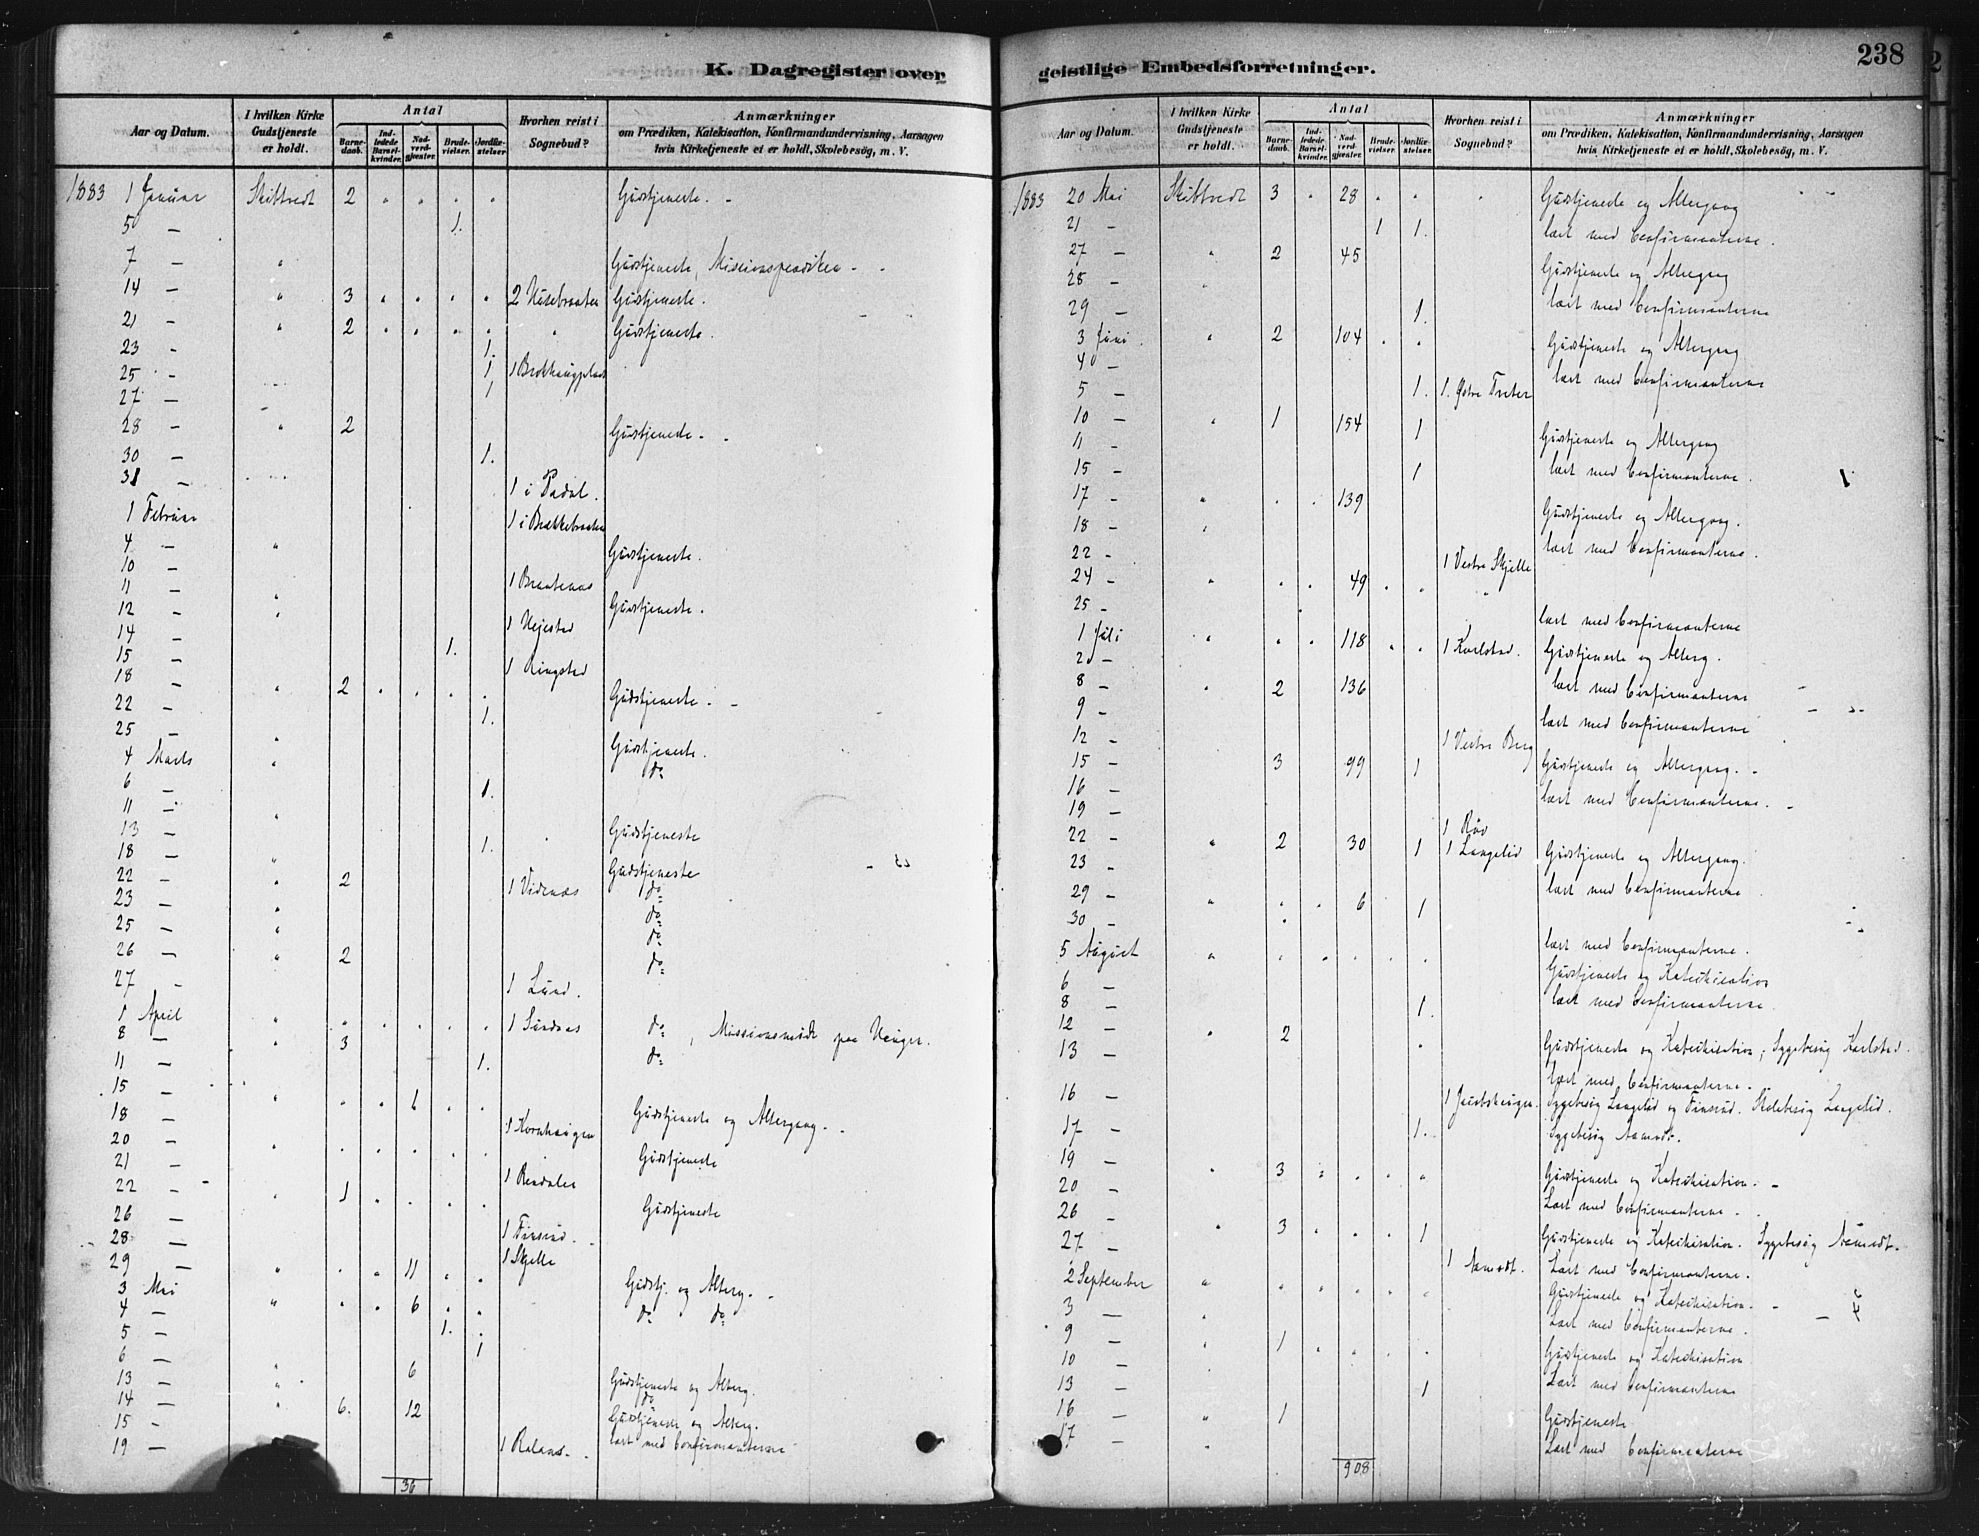 K. Dagregister over
Aar og Datum.
I hvilken Kirke Gudstjeneste er holdt.
Antal
Barnedaab.
Indledede Barselkvinder.
Nadverdgjester.
Brudevielser.
Jordfæstelser
Hvorhen reist i Sognebud?
Anmærkninger
om Prædiken, Katekisation, Konfirmandundervisning, Aarsagen
hvis Kirketjeneste ei er holdt, Skolebesøg, m. V.
1883 1 Januar Skibtvedt 2 Gudstjeneste.
5 — 1.
7 — " Gudstjeneste, Missionsprædiken
14 — " 3 2 Gudstjeneste.
21 — " 2 Gudstjeneste.
23 - 1.
25 - 1 1
27 — 1
28 - " 2 Gudstjeneste.
30 — 1.
31 — 1 i
1 Februar 1 i
4 — " Gudstjeneste.
10 —
11 — " 1 Gudstjeneste.
12 — "
14 — 1
15 — 1.
18 — " 2 1 Ringstad Gudstjeneste.
22 — 1.
25 — " Gudstjeneste.
4 Marts " do
6 — 1.
11 — " Gudstjeneste
13 — 1.
18 — " Gudstjeneste
22 — " 2 1 Vidnæs do
23 — " do
25 — " do
26 — " 2 do
27 - 1 Lund.
1 April " 1 Sundnæs do, Missionsmøde paa
8 — " 3 do
11 — 1.
15 — " 6 Gudstjeneste og Altergang.
18 — 1 Kornhaugen
20 — " Gudstjeneste
21 — 1
22 — " 1 Gudstjeneste
26 — 1 Finsrud.
28 — 1 Skjelle
29 — " 11 Gudstj. og Alterg.
3 Mai " 6 do do
4 — 1.
5 — 1
6 — " 6 Gudstjeneste og Alterg.
13 — " do
14 — " 6. 12 Gudstjeneste og Alterg.
15 — læst med Confirmanterne
19 — 1
36
geistlige Embedsforretninger.
238
Aar og Datum.
I hvilken Kirke Gudstjeneste er holdt.
Antal
Barnedaab.
Indledede Barselkvinder.
Nadverdgjester.
Brudevielser.
Jordfæstelser.
Hvorhen reist i Sognebud?
Anmærkninger
om Prædiken, Katekisation, Konfirmandundervisning, Aarsagen
hvis Kirketjeneste ei er holdt, Skolebesøg, m. V.
1883 20 Mai Skibtvedt 3 28 Gudstjeneste og Altergang
21 - 1 1. læst med Confirmanterne.
27 — " 2 45 Gudstjeneste og Altergang
28 — " læst med Confirmanterne
29 — 1.
3 Juni " 2 104 Gudstjeneste og Altergang
4 — læst med Confirmanterne
5 — 1. 1. Østre
10 — " 1 154 1 Gudstjeneste og Altergang
11 — læst med Confirmanterne.
15 — 1
17 — " 139 Gudstjeneste og Altergang.
18 — " læst med Confirmanterne.
22 - 1 Vestre Skjelle
24 — " 49
25 - læst med Confirmanterne
1 Juli " 118 1 Karlstad. Gudstjeneste og Alterg.
2 — læst med Confirmanterne
8 — " 2 136
9 — læst med Confirmanterne
12 — 1 Vestre Berg
15 — 3 99 1 Gudstjeneste og Altergang.
16 — læst med Confirmanterne.
19 — 1
22 — " 2 30 1 1 Langelid Gudstjeneste og Altergang.
23 — læst med Confirmanterne
29 — " 6 1
30 — læst med Confirmanterne.
5 August " Gudstjeneste og Katechisation
6 — læst med Confirmanterne
8 — 1.
12 — " 2 Gudstjeneste og Katechisation, Sygebesøg Karlstad.
13 — læst med Confirmanterne.
16 — 1 Sygebesøg Langelid og Finsrud. Skolebesøg Langelid.
17 — 1. Sygebesøg Aamodt.
19 — " 3 Gudstjeneste og Katechisation.
20 — Læst med Confirmanterne.
26 — " 3 1 Gudstjeneste og Katechisation. Sygebesøg Aamodt.
27 — 1 Aamodt. Læst med Confirmanterne.
2 September " Gudstjeneste og Katechisation.
3 — " Læst med Confirmanterne.
9 — " 1 Gudstjeneste og Katechisation
10 — Læst med Confirmanterne
13 — 1
16 — " 1 Gudstjeneste
17 — " Læst med Confirmanterne
908